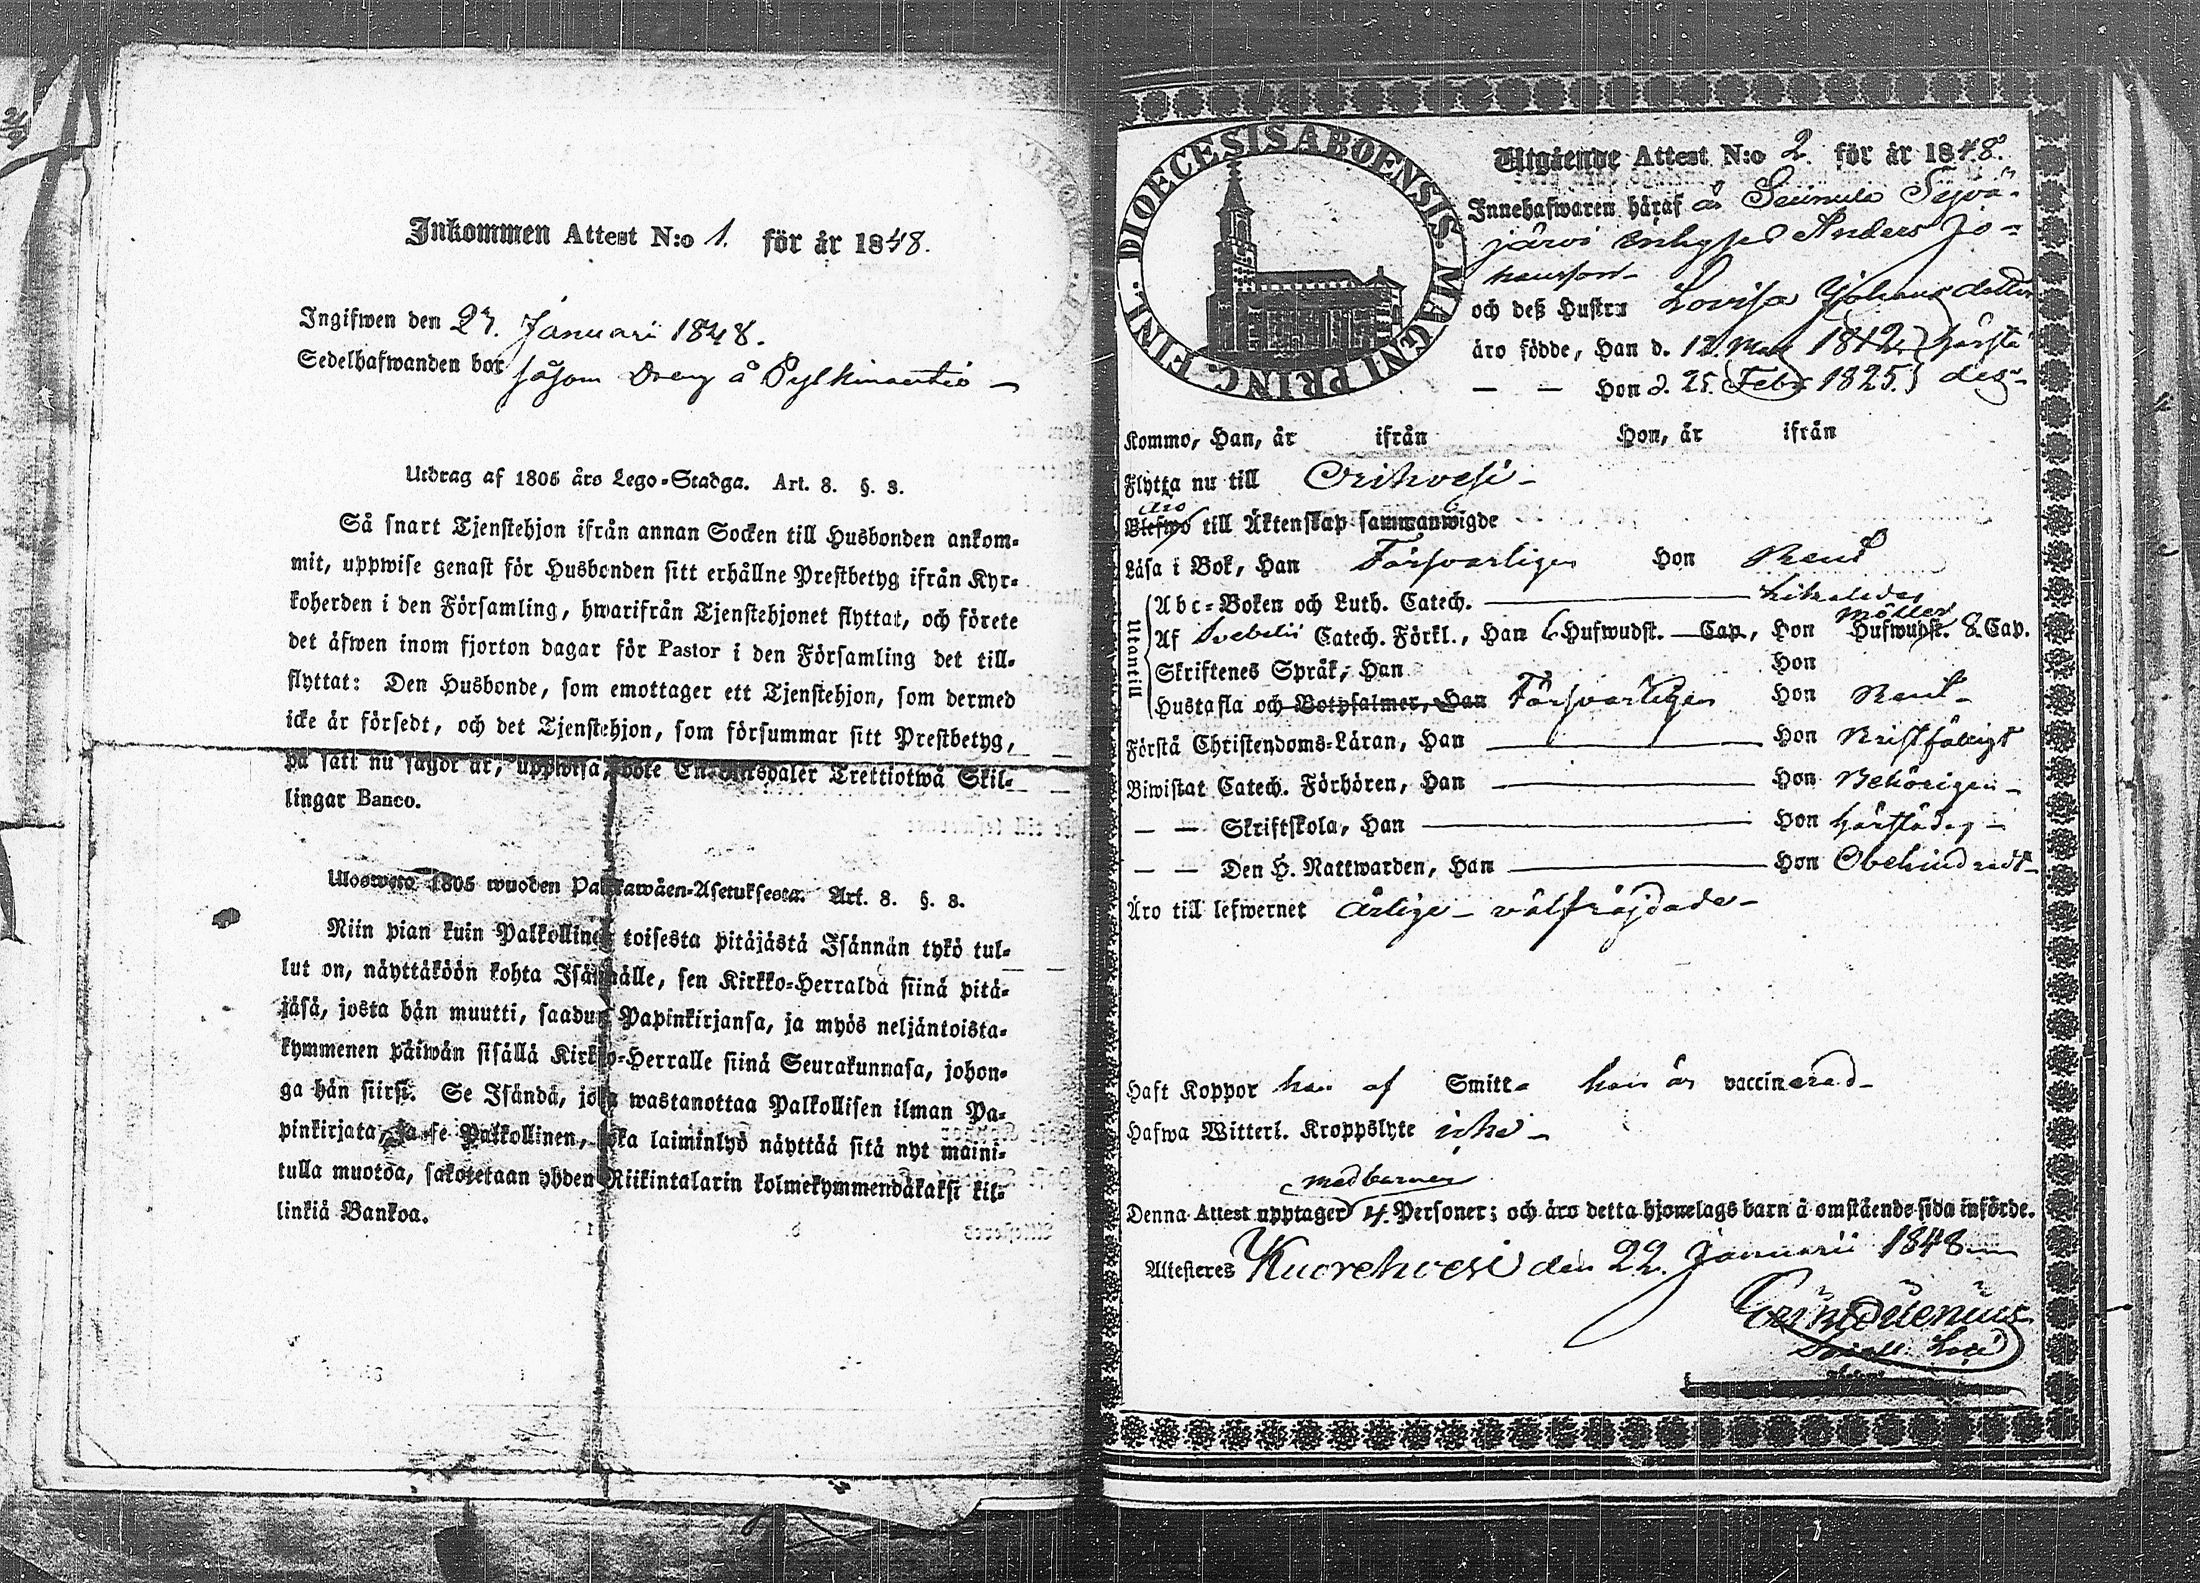 Inkommen Attest N:o 1. för år 1848.
Ingifwen den 27. Januari 1848.
Sedelhafwanden bor såsom Dreng å
Utdrag af 1805 års Lego-Stadga. Art. 8. §. 3.
Så snart Tjenstehjon ifrån annan Socken till Husbonden ankom-
mit, uppwise genast för Husbonden sitt erhållne Prestbetyg ifrån Kyr-
koherden i den Församling, hwarifrån Tjenstehjonet flyttat, och förete
det äfwen inom fjorton dagar för Pastor i den Församling det till-
flyttat: Den Husbonde, som emottager ett Tjenstehjon, som dermed
icke är försedt, och det Tjenstehjon, som försummar sitt Prestbetyg,
på sätt nu sagdt är, uppwisa, böte En Riksdaler Trettiotwå Skil-
lingar Banco.
Ulosweto 1805 wuoden Palkkawäen-Asetuksesta. Art. 8. §. 3.
Niin pian kuin Palkollinen toisesta pitäjästä Isännän tykö tul-
lut on, näyttäköön kohta Isännälle, sen Kirkko-Herralda siinä pitä-
jäsä, josta hän muutti, saadun Papinkirjansa, ja myös neljäntoista-
kymmenen päiwän sisällä Kirkko-Herralle siinä Seurakunnasa, johon-
ga hän siirsi. Se Isändä, joka wastanottaa Palkollisen ilman Pa-
pinkirjata, ja se Palkollinen, joka laiminlyö näyttää sitä nyt maini-
tulla muotoa, sakotetaan yhden Riikintalarin kolmekymmendäkaksi kil-
linkiä Bankoa.
DIOECESIS ABOENSIS. MAGNI PRINC. FINL.
Utgående Attest N:o 2. för år 1848.
Innehafwaren häraf är
järvi Anders Jo-
hansson
och deß Hustru Lovisa Johansdotter
äro födde, Han d. 12. 1812. härstä-
— — Hon d. 25. Febr 1825. des-
Kommo, Han, år ifrån Hon, år ifrån
Flytta nu till Orihvesi
äro
Blefwo till Äktenskap sammanwigde
Läsa i Bok, Han Försvarligen Hon Rent
Utantill
Abc-Boken och Luth. Catech. — Likaledes
Möller
Af Svebelii Catech. Förkl., Han 6 Hufwudst. — Cap., Hon Hufwudst. 8 Cap.
Skriftenes Språk, Han Hon
Hustafla och Botpsalmer, Han Försvarligen Hon Rent
Förstå Christendoms-Läran, Han — Hon
Biwistat Catech. Förhören, Han — Hon Behörigen
— — Skriftskola, Han — Hon härstädes
— — Den H. Nattwarden, Han — Hon Obehindradt
Äro till lefwernet ärlige välfräjdade
Haft Koppor han af Smitta hon är vaccinerad
Hafwa Witterl. Kroppslyte icke
med barnen
Denna Attest upptager 4. Personer; och äro detta hjonelags barn å omstående sida införde.
Attesteres Kuorehvesi den 22. Januarii 1848